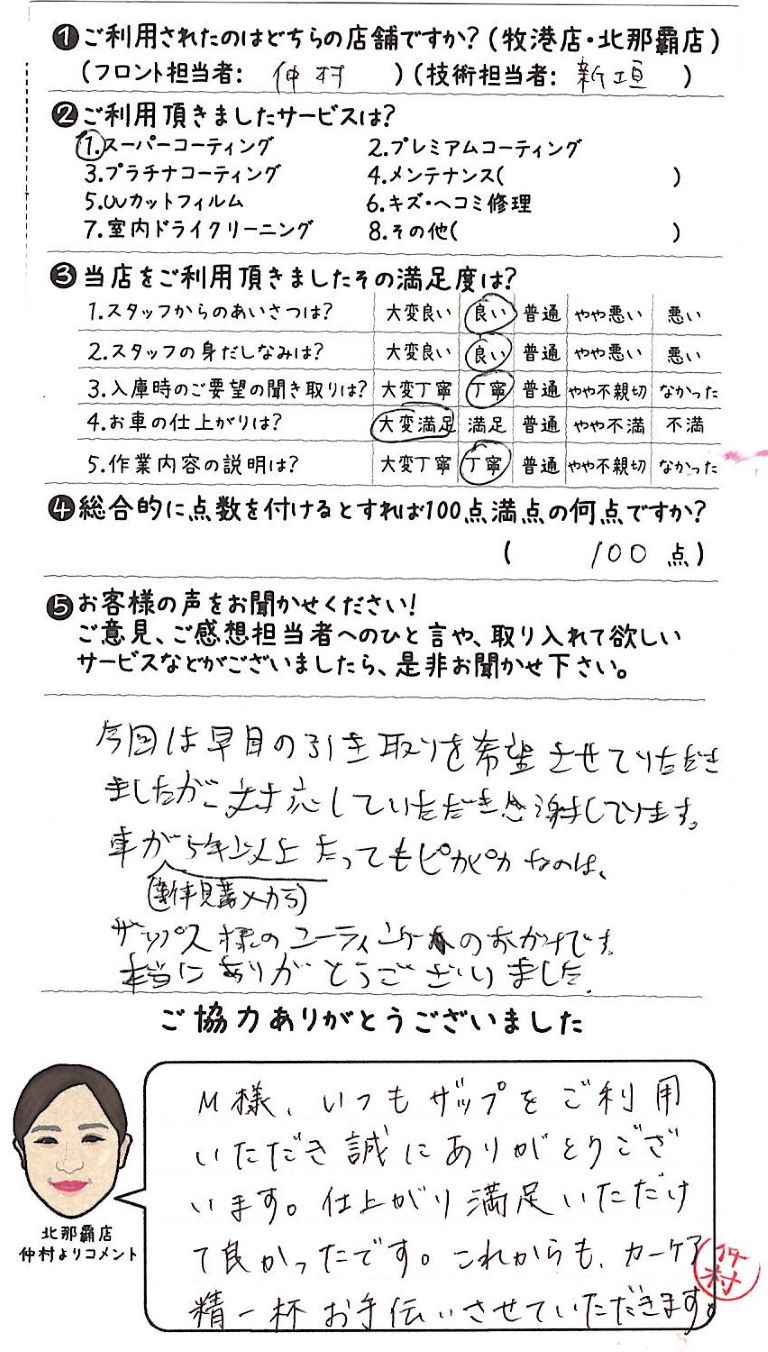 ❶ご利用されたのはどちらの店舗ですか?(牧港店・北那覇店)
(フロント担当者: 仲村 )(技術担当者: 新垣 )
❷ご利用頂きましたサービスは?
1.スーパーコーティング 2.プレミアムコーティング
3.プラチナコーティング 4.メンテナンス( )
5.UVカットフィルム 6.キズ・ヘコミ修理
7.室内ドライクリーニング 8.その他( )
❸当店をご利用頂きましたその満足度は?
1.スタッフからのあいさつは? 大変良い 良い 普通 やや悪い 悪い
2.スタッフの身だしなみは? 大変良い 良い 普通 やや悪い 悪い
3.入庫時のご要望の聞き取りは? 大変丁寧 丁寧 普通 やや不親切 なかった
4.お車の仕上がりは? 大変満足 満足 普通 やや不満 不満
5.作業内容の説明は? 大変丁寧 丁寧 普通 やや不親切 なかった
❹総合的に点数を付けるとすれば100点満点の何点ですか?
( 100 点)
❺お客様の声をお聞かせください!
ご意見、ご感想担当者へのひと言や、取り入れて欲しい
サービスなどがございましたら、是非お聞かせ下さい。
今回は早目の引き取りを希望させていただき
ましたが、対応していただき感謝しております。
車が5年以上たってもピカピカなのは、
(新車購入から)
ザップス様のコーティングのおかげです。
本当にありがとうございました。
ご協力ありがとうございました
M様、いつもザップをご利用
いただき誠にありがとうござ
います。仕上がり満足いただけ
て良かったです。これからも、カーケア
精一杯お手伝いさせていただきます。
北那覇店
仲村よりコメント
仲村